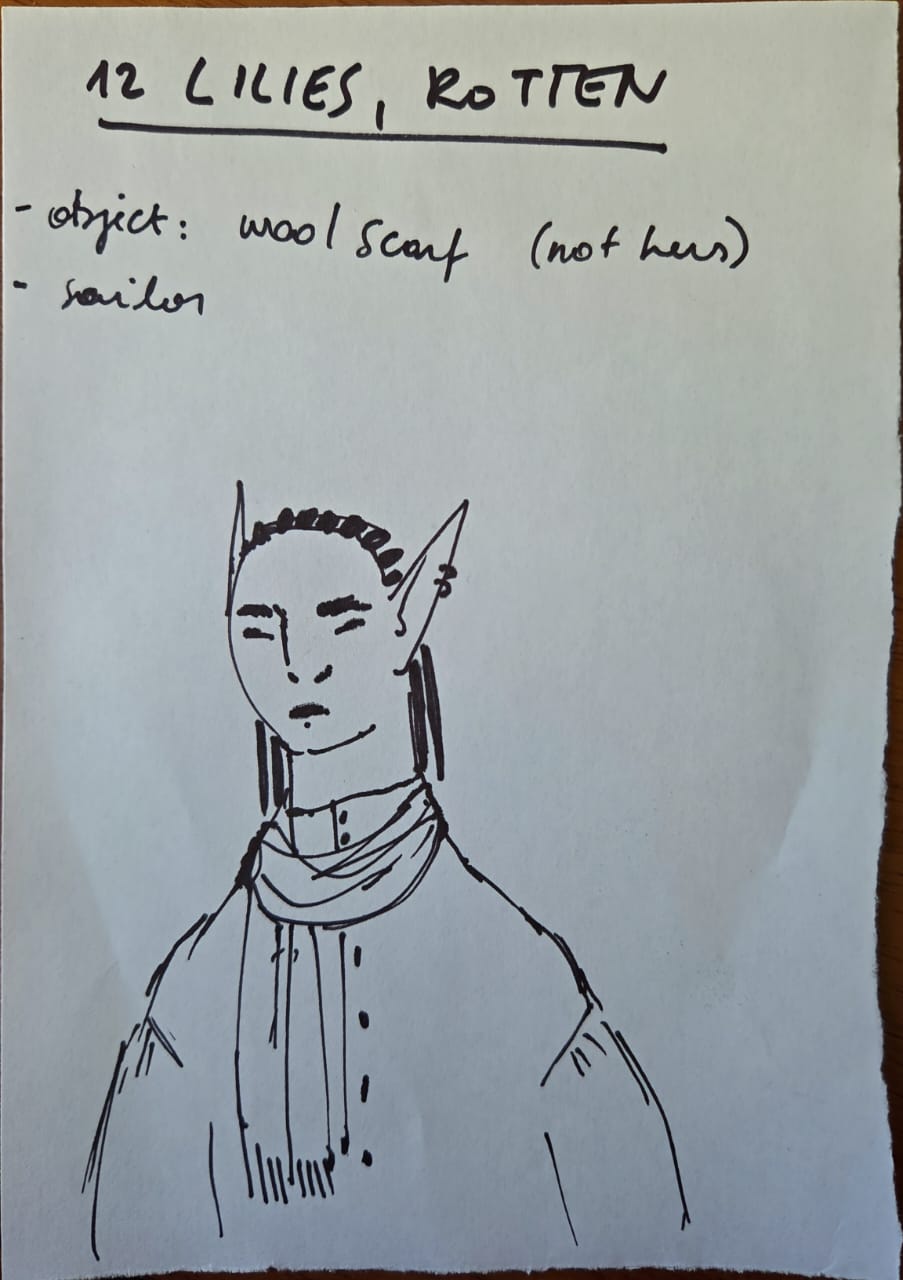 12 LILIES, ROTTEN
- object: wool scarf (not hers)
- sailor